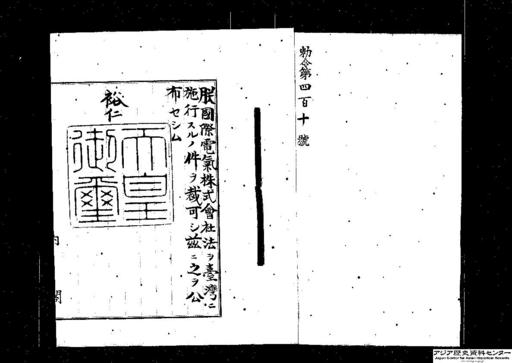 勅令第四百十號
朕國際電氣株式會社法ヲ臺灣ニ
施行スルノ件ヲ裁可シ茲ニ之ヲ公
布セシム
裕仁
天皇
御璽
内閣
アジア歴史資料センター
Japan Center for Asian Historical Records